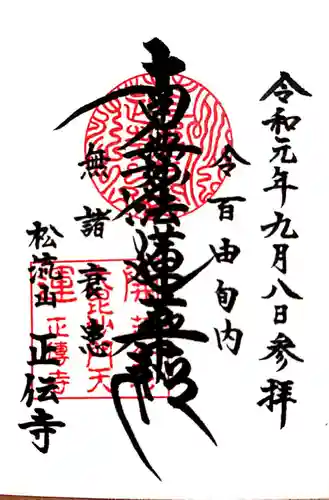 令和元年九月八日参拝
令百由旬内
南無妙法蓮華経
無諸衰患
松流山 正伝寺
開運
毘沙門天
正傳寺